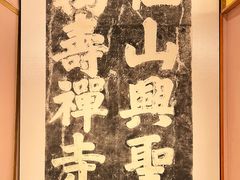 山興聖
壽禪寺